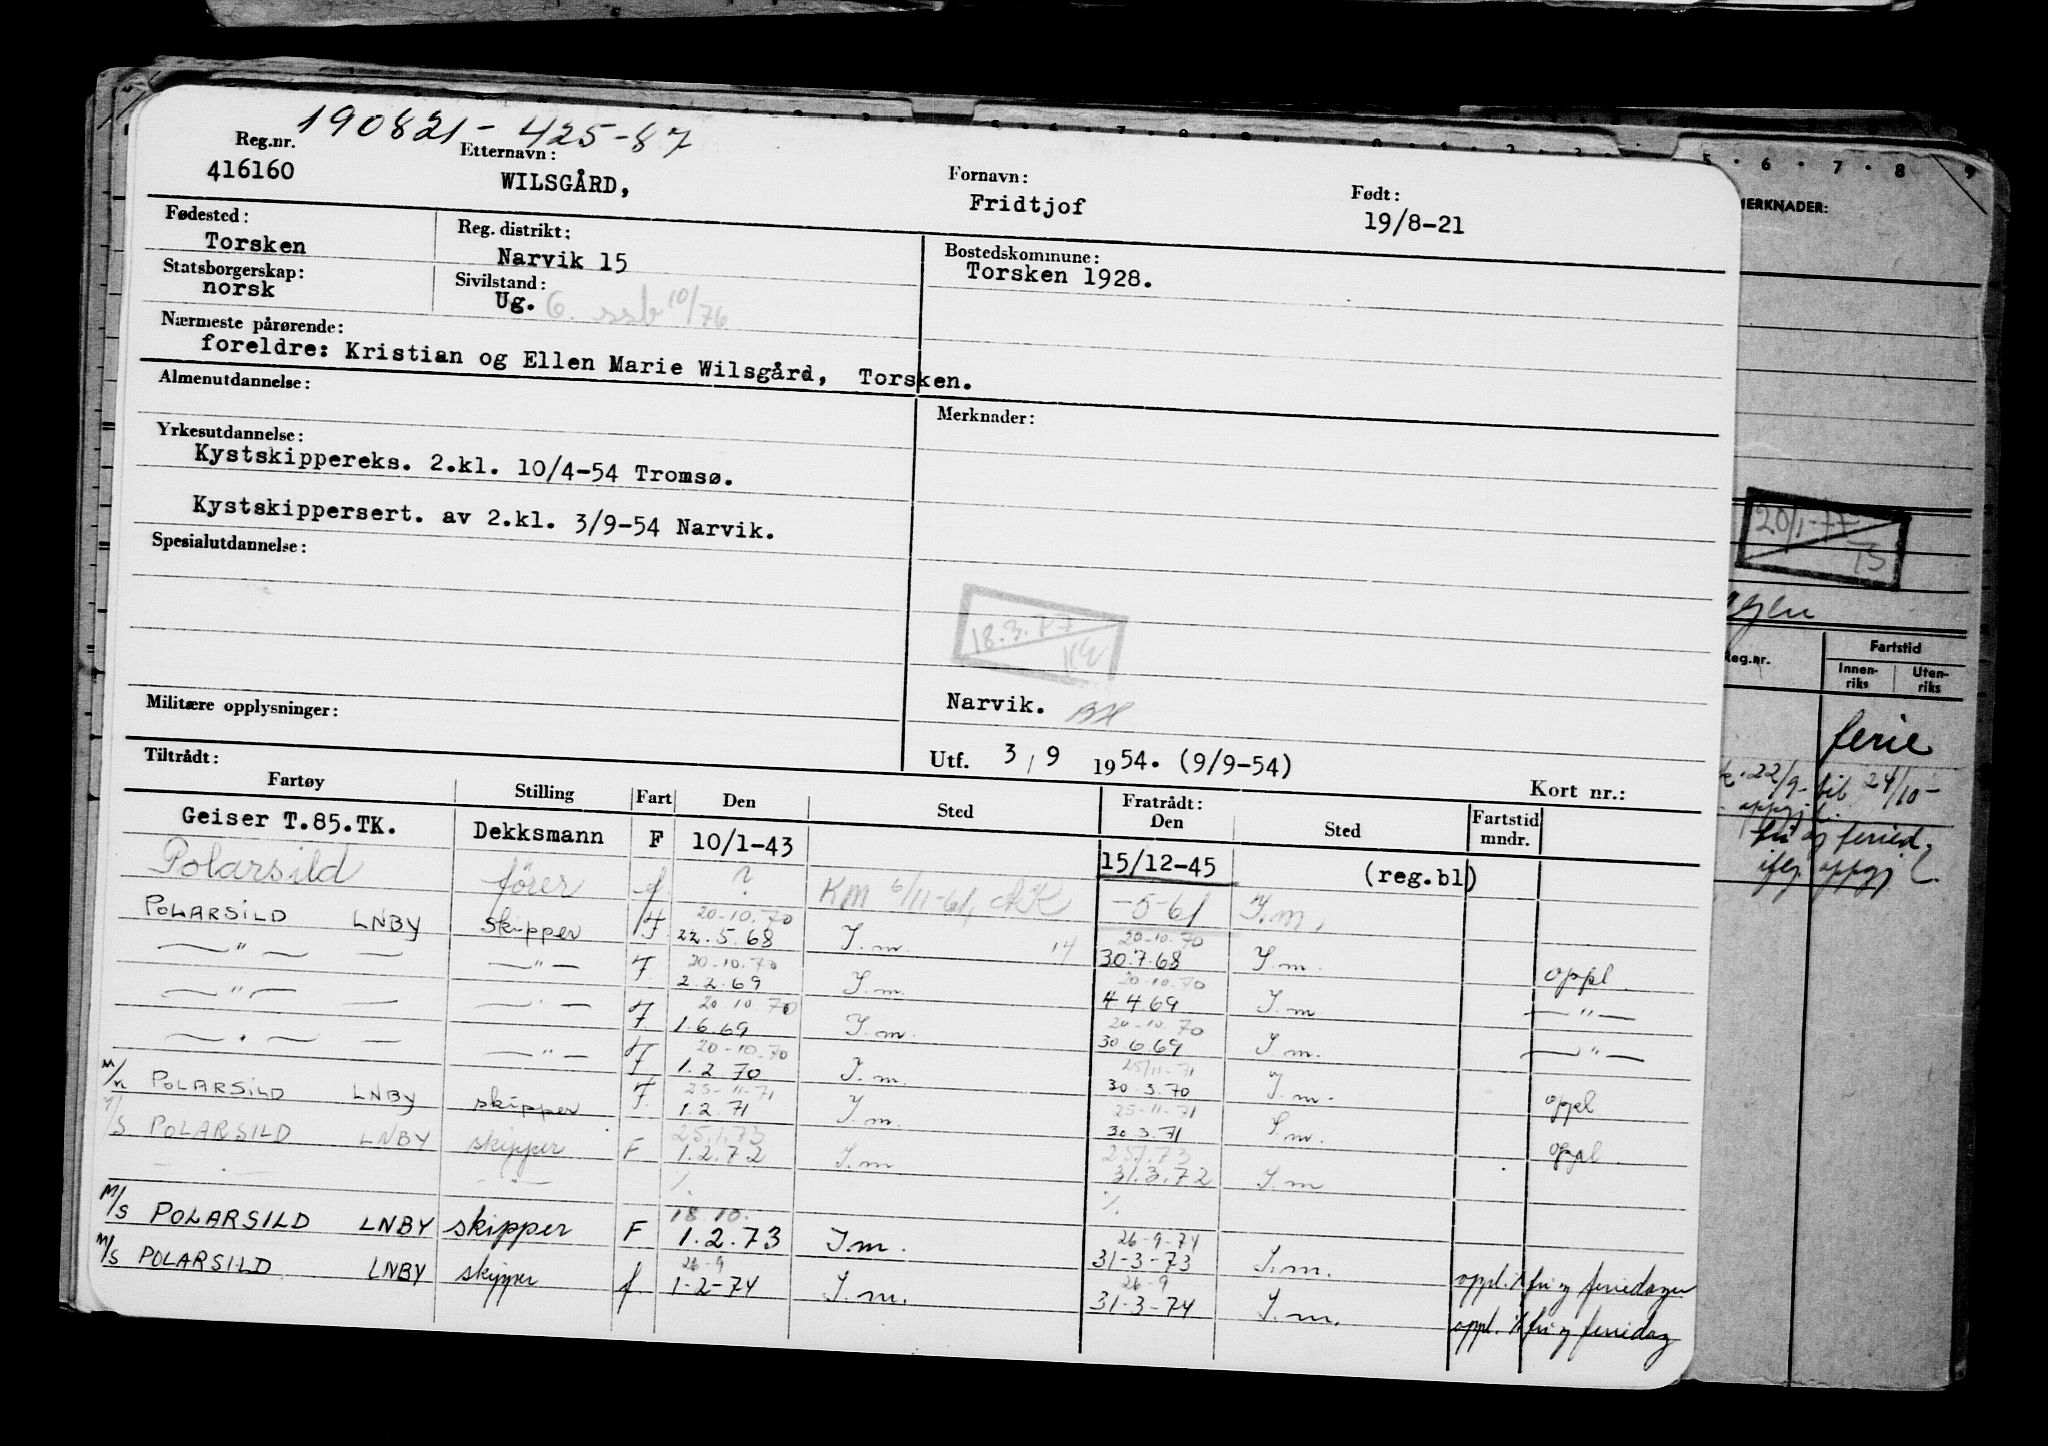 190821-425-87
Reg.nr. Etternavn: Fornavn: Født:
416160 WILSGÅRD, Fridtjof 19/8-21
Fødested: Reg. distrikt: Bostedskommune:
Torsken Narvik 15 Torsken 1928.
Statsborgerskap: Sivilstand:
norsk Ug. G. ssb 10/76
Nærmeste pårørende:
foreldre: Kristian og Ellen Marie Wilsgård, Torsken.
Almenutdannelse: Merknader:
Yrkesutdannelse:
Kystskippereks. 2.kl. 10/4-54 Tromsø.
Kystskippersert. av 2.kl. 3/9-54 Narvik.
Spesialutdannelse:
18.3.77
KW
Militære opplysninger: Narvik.
Utf. 3/9 1954. (9/9-54)
Tiltrådt: Kort nr.:
Fartøy Stilling Fart Den Sted Fratrådt: Den Sted Fartstid mndr.
Geiser T.85.TK. Dekksmann F 10/1-43 15/12-45 (reg.bl)
Polarsild fører f. ? KM 6/11-61, AK -5-61 I.m.
20-10.70 20-10.70
POLARSILD LNBY skipper F. 22.5.68 I.m. 14 30.7.68 I.m. oppl.
20-10.70 20-10.70
— " — — — " — F. 2.2.69 I.m. 4.4.69 I.m — " —
20 10.70 20-10.70
— " — — — " — F. 1.6.69 I.m. 30.6.69 I.m. — " —
20-10-70 25/11-71
— " — — — " — F. 1.2 70 I.m. 30.3.70 I.m. oppl
25-11-71 25-11-71
M/K POLARSILD LNBY skipper F. 1.2.71 I.m. 30.3.71 I.m. oppl.
25.1.73 25.1.73
M/S POLARSILD LNBY skipper F 1.2.72 I.m 31.3.72 I.m
— " — — " — % %
18.10. 26-9-74
M/S POLARSILD LNBY skipper F 1.2.73 I.m. 31-3-73 I.m. oppl. % fri og feriedager
26-9 26-9
M/S POLARSILD LNBY skipper f. 1-2-74 I.m. 31-3-74 I.m. oppl. % fri og feriedag
5 · 6 · 7 · 8 · 9
MERKNADER:
20/1-77
TS
Reg.nr. Fartstid
Innenriks Utenriks
ferie
22/9- bib 24/10-
fri og feried.
iflg. oppgj